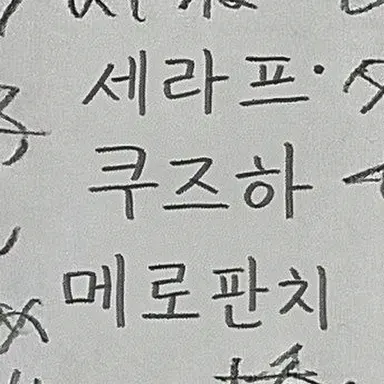 세라프·
쿠즈하
메로판치